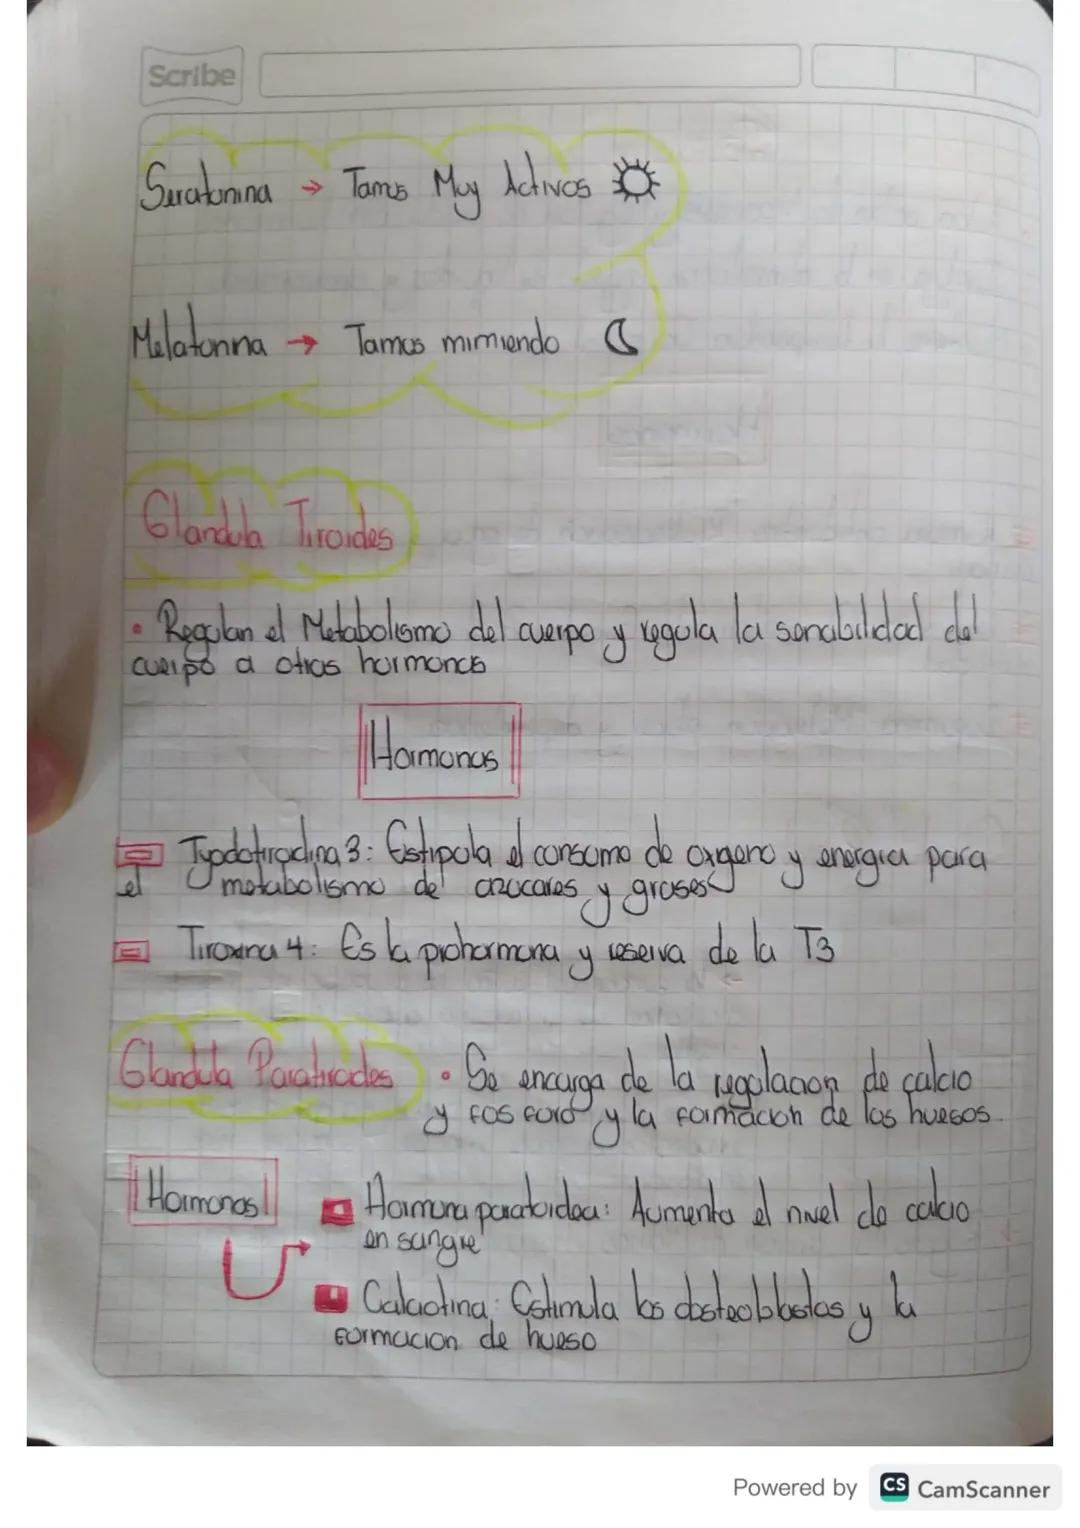 Scribe
Seratonina → Tamos Muy Activos
Melatonina → Tamos mimiendo
Glandula Tiroides
• Regulan el Metabolismo del cuerpo y regula la sensibilidad del
cuerpo a otras hormonas
Hormonas
Tyodotirodina 3: Estipula el consumo de oxgeno y energia para
el metabolismo de azucares y grases
Tiroxina 4: Es la prohormona y reserva de la T3
Glandula Paratiroides • Se encarga de la regulacion de calcio
y fosforo y la formacion de los huesos.
Hormonas
Hormona paratoidea: Aumenta el nivel de calcio
en sangre
Calciotina: Estimula los obsteoblastos y la
formacion de hueso
Powered by CS CamScanner